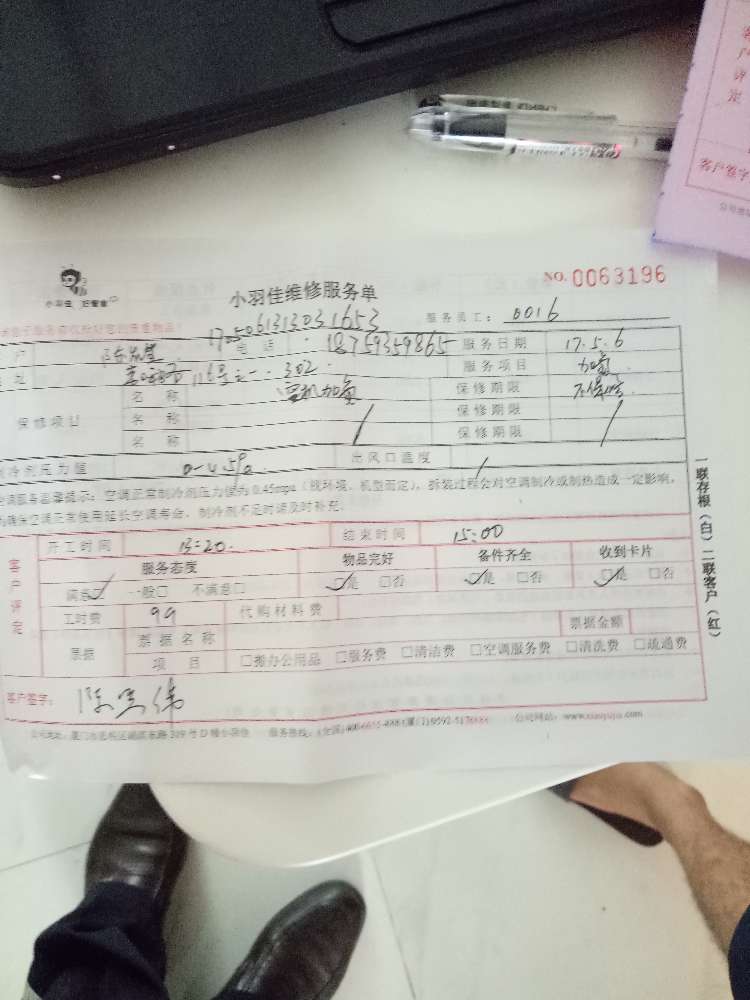 小羽佳 好管家
小羽佳维修服务单
NO. 0063196
服务员工： 0016
1705061313031653
户 电话 18759359865 服务日期 17.5.6
址 116号之一.302 服务项目 加氟
保修项目 名称 空机加氟 保修期限 不保修
名称 保修期限
名称 保修期限
制冷剂压力值 0-45Pa 出风口温度
空调服务温馨提示：空调正常制冷剂压力值为0.45mpa（视环境、机型而定），拆装过程会对空调制冷或制热造成一定影响，
为确保空调正常使用延长空调寿命，制冷剂不足时请及时补充。
客户评定
开工时间 13:20. 结束时间 15:00
服务态度 物品完好 备件齐全 收到卡片
满意☑ 一般□ 不满意□ ☑是 □否 ☑是 □否 ☑是 □否
工时费 99 代购材料费
票据 票据名称 票据金额
项目 □办公用品 □服务费 □清洁费 □空调服务费 □清洗费 □疏通费
客户签字：
服务热线： 公司网站：www.xiaoyujia.com
一联存根（白）二联客户（红）
客户评定
客户签字